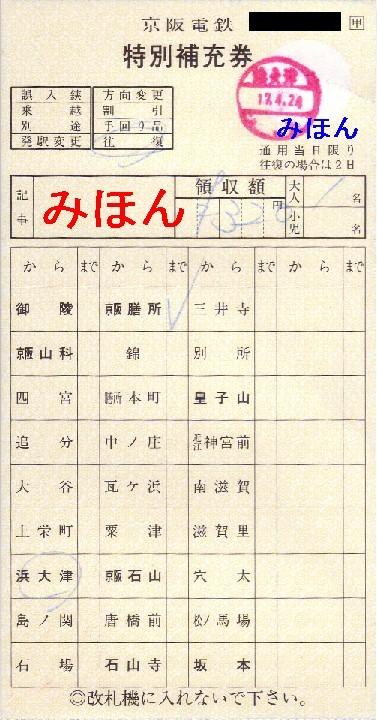 京阪電鉄 甲
特別補充券
誤入鋏 方向変更
乗越 割引
別途 手回り品
発駅変更 往復
浜大津
17.4.24
みほん
通用当日限り
往復の場合は2日
記事 みほん 領収額 円 大人 名 小児 名
から まで から まで から まで
御陵 京阪膳所 三井寺
京阪山科 錦 別所
四宮 膳所本町 皇子山
追分 中ノ庄 近江神宮前
大谷 瓦ケ浜 南滋賀
上栄町 粟津 滋賀里
浜大津 京阪石山 穴太
島ノ関 唐橋前 松ノ馬場
石場 石山寺 坂本
◎改札機に入れないで下さい。